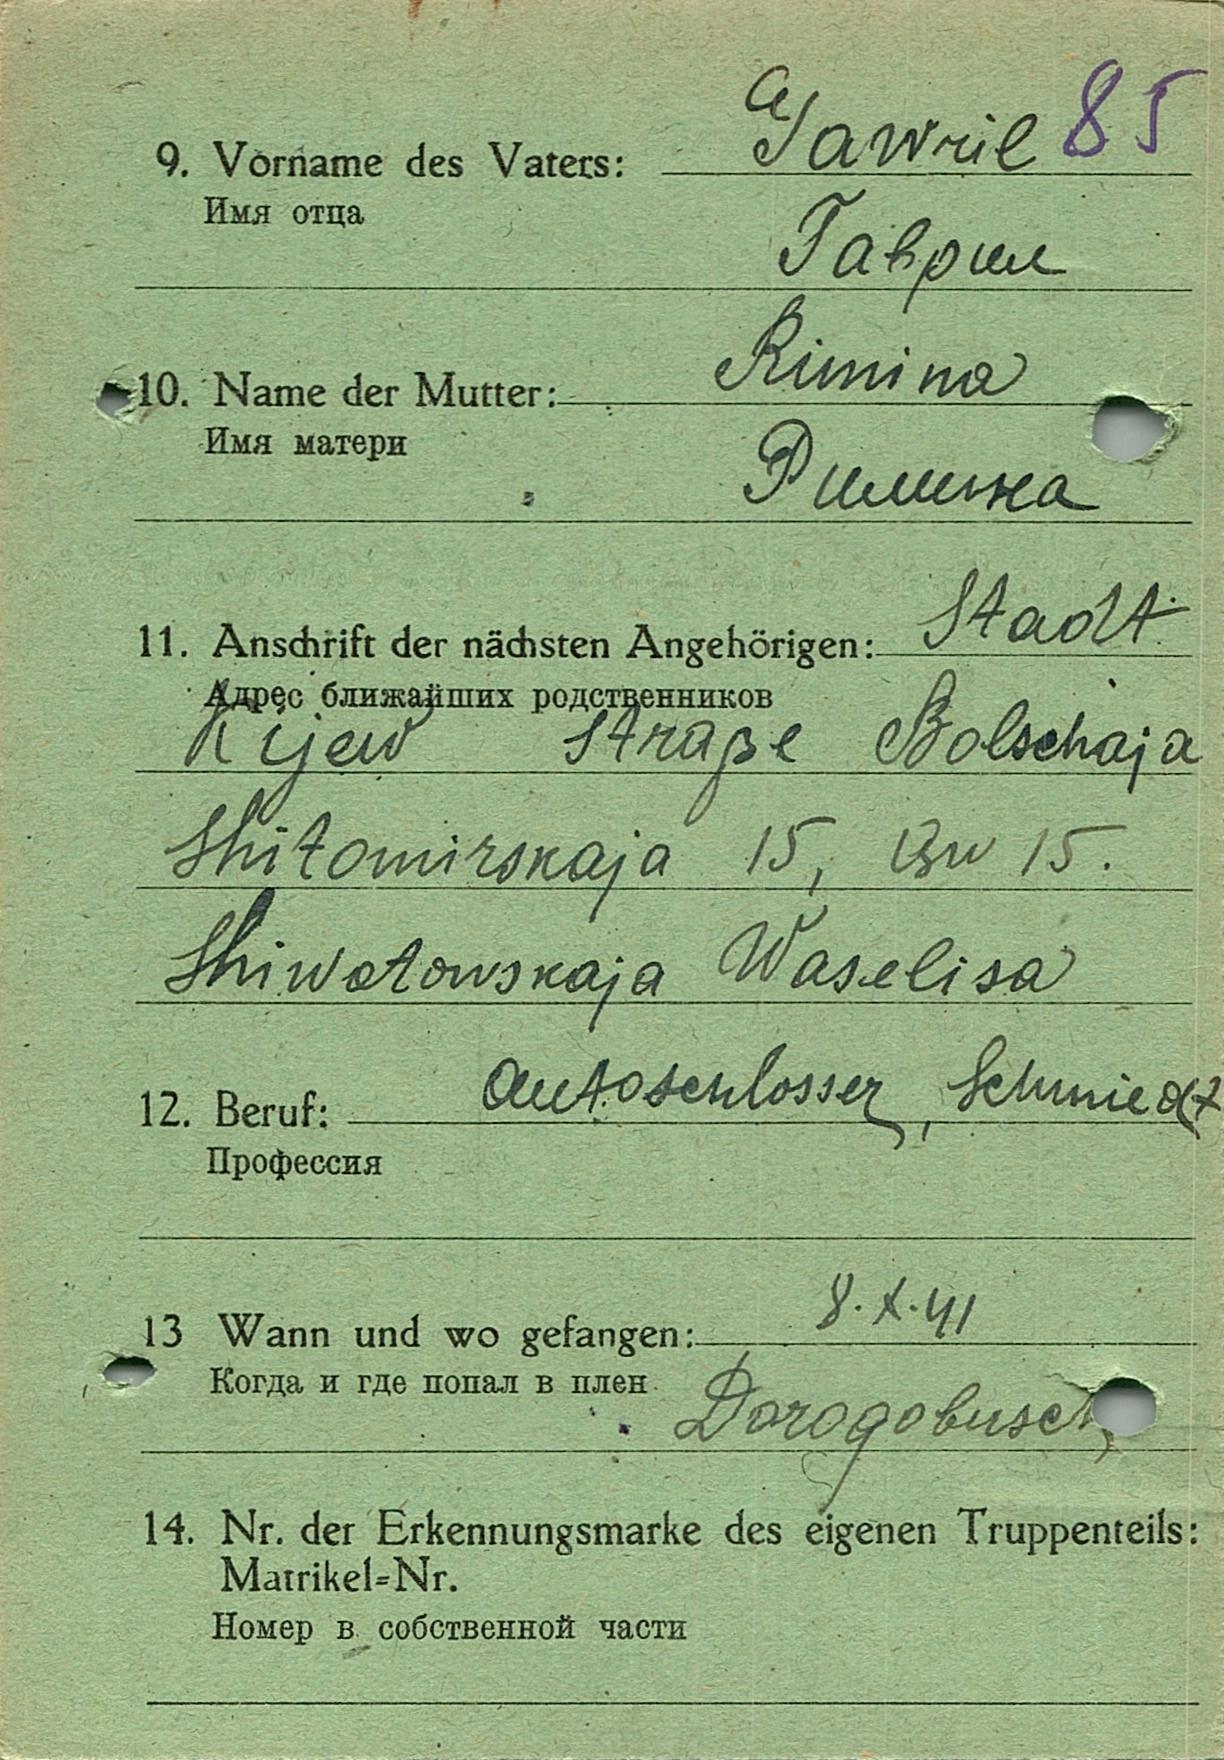 Gawril 85
9. Vorname des Vaters:
Имя отца
Гаврил
Rimina
10. Name der Mutter:
Имя матери
Римина
Stadt
11. Anschrift der nächsten Angehörigen:
Адрес ближайших родственников
Kijew Straße Bolschaja
Shitomirskaja 15, 15.
Shiwotowskaja Waselisa
Autoschlosser, Schmiedt
12. Beruf:
Профессия
8.X.41
13 Wann und wo gefangen:
Когда и где попал в плен
Dorogobusch
14. Nr. der Erkennungsmarke des eigenen Truppenteils:
Matrikel=Nr.
Номер в собственной части